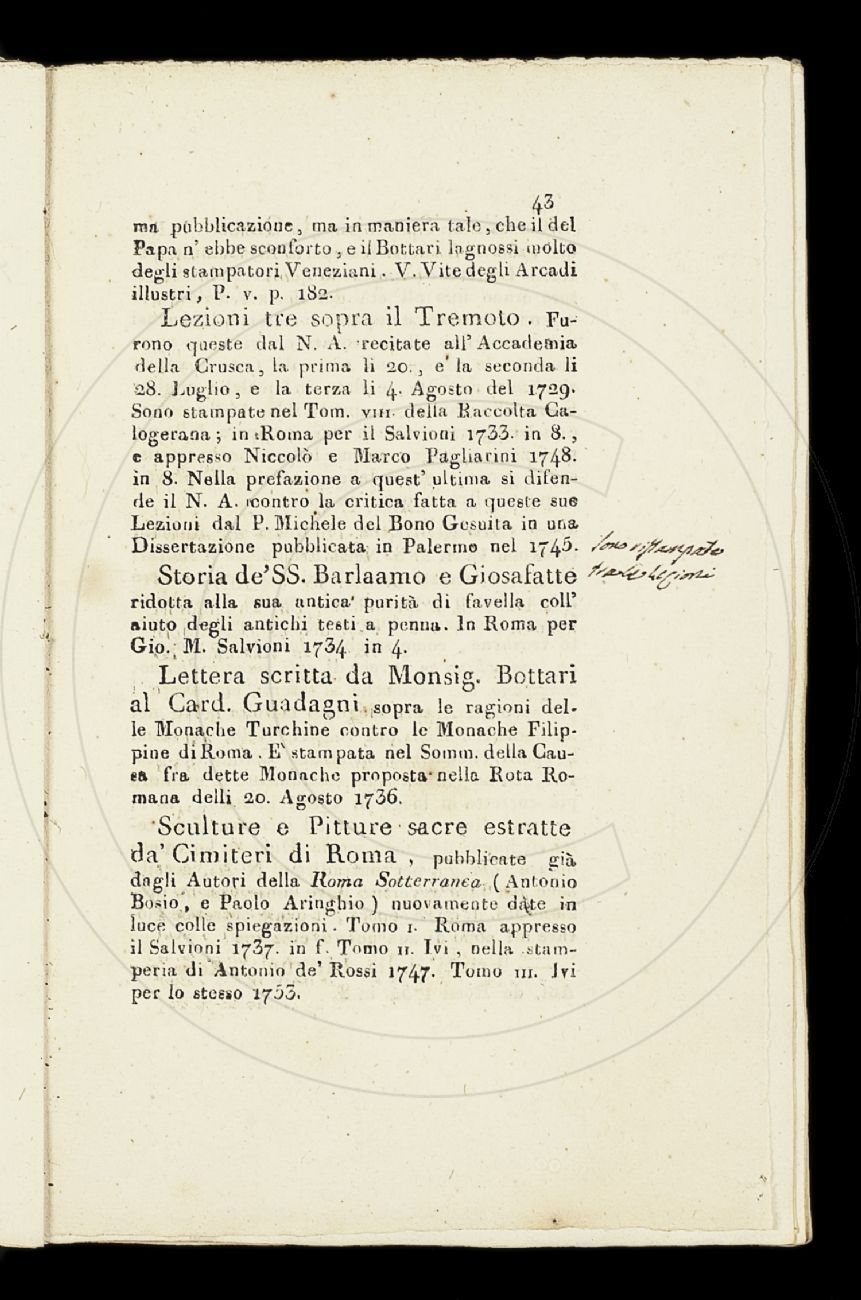 43
ma pubblicazione, ma in maniera tale, che il del
Papa n' ebbe sconforto, e il Bottari lagnossi molto
degli stampatori Veneziani. V. Vite degli Arcadi
illustri, P. v. p. 182.
Lezioni tre sopra il Tremoto. Fu-
rono queste dal N. A. recitate all' Accademia
della Crusca, la prima li 20., e la seconda li
28. Luglio, e la terza li 4. Agosto del 1729.
Sono stampate nel Tom. VIII. della Raccolta Ca-
logerana; in Roma per il Salvioni 1733. in 8.,
e appresso Niccolò e Marco Pagliarini 1748.
in 8. Nella prefazione a quest' ultima si difen-
de il N. A. contro la critica fatta a queste sue
Lezioni dal P. Michele del Bono Gesuita in una
Dissertazione pubblicata in Palermo nel 1745.
Sono ristampate
tra le Lezioni
Storia de' SS. Barlaamo e Giosafatte
ridotta alla sua antica purità di favella coll'
aiuto degli antichi testi a penna. In Roma per
Gio. M. Salvioni 1734 in 4.
Lettera scritta da Monsig. Bottari
al Card. Guadagni sopra le ragioni del-
le Monache Turchine contro le Monache Filip-
pine di Roma. E' stampata nel Somm. della Cau-
sa fra dette Monache proposta nella Rota Ro-
mana delli 20. Agosto 1736.
Sculture e Pitture sacre estratte
da' Cimiteri di Roma, pubblicate già
dagli Autori della Roma Sotterranea (Antonio
Bosio, e Paolo Aringhio) nuovamente date in
luce colle spiegazioni. Tomo I. Roma appresso
il Salvioni 1737. in f. Tomo II. Ivi, nella stam-
peria di Antonio de' Rossi 1747. Tomo III. Ivi
per lo stesso 1753.